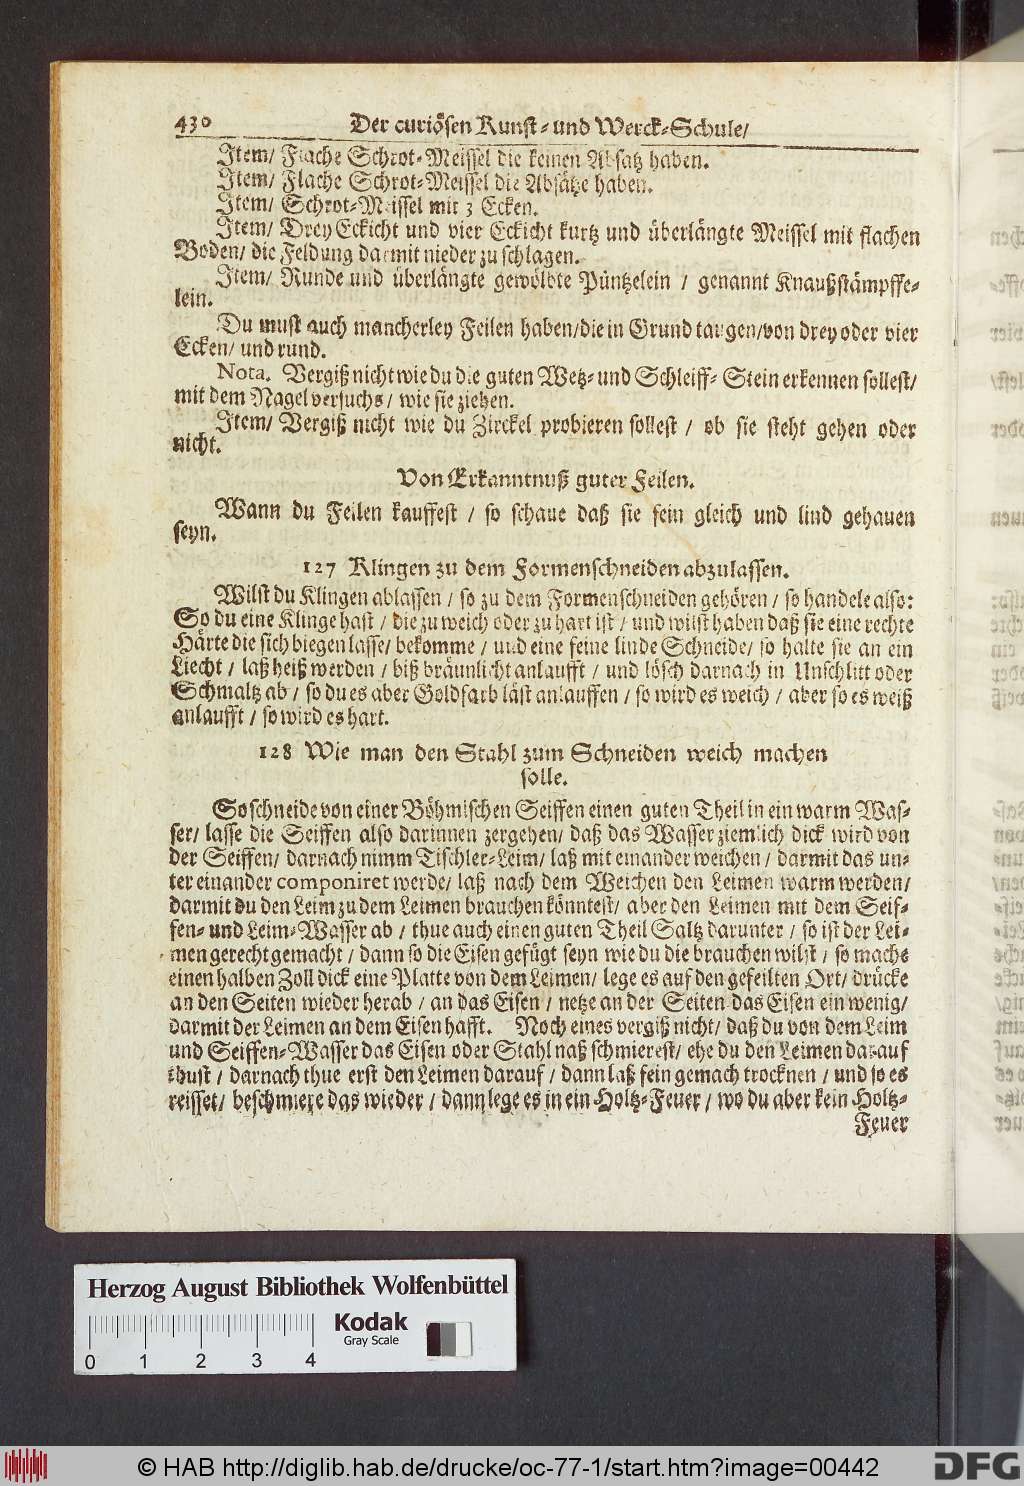 430 Der curiösen Kunst- und Werck-Schule/
Item/ Flache Schrot-Meissel die keinen Absatz haben.
Item/ Flache Schrot-Meissel die Absätze haben.
Item/ Schrot-Meissel mit 3 Ecken.
Item/ Drey Eckicht und vier Eckicht kurtz und überlängte Meissel mit flachen
Boden/ die Feldung darmit nieder zu schlagen.
Item/ Runde und überlängte gewölbte Püntzelein / genannt Knaußstämpffe-
lein.
Du must auch mancherley Feilen haben/ die in Grund taugen/ von drey oder vier
Ecken/ und rund.
Nota. Vergiß nicht wie du die guten Wetz- und Schleiff- Stein erkennen sollest/
mit dem Nagel versuchs / wie sie ziehen.
Item/ Vergiß nicht wie du Zirckel probieren sollest / ob sie steht gehen oder
nicht.
Von Erkanntnuß guter Feilen.
Wann du Feilen kauffest / so schaue daß sie fein gleich und lind gehauen
seyn.
127 Klingen zu dem Formenschneiden abzulassen.
Wilst du Klingen ablassen / so zu dem Formenschneiden gehören / so handele also:
So du eine Klinge hast / die zu weich oder zu hart ist / und wilst haben daß sie eine rechte
Härte die sich biegen lasse/ bekomme / und eine feine linde Schneide/ so halte sie an ein
Liecht / laß heiß werden / biß bräunlicht anlaufft / und lösch darnach in Unschlitt oder
Schmaltz ab / so du es aber Goldfarb läst anlauffen / so wird es weich / aber so es weiß
anlaufft / so wird es hart.
128 Wie man den Stahl zum Schneiden weich machen
solle.
So schneide von einer Böhmischen Seiffen einen guten Theil in ein warm Was-
ser/ lasse die Seiffen also darinnen zergehen/ daß das Wasser ziemlich dick wird von
der Seiffen/ darnach nimm Tischler-Leim/ laß mit einander weichen / darmit das un-
ter einander componiret werde/ laß nach dem Weichen den Leimen warm werden/
darmit du den Leim zu dem Leimen brauchen könntest/ aber den Leimen mit dem Seif-
fen- und Leim-Wasser ab / thue auch einen guten Theil Saltz darunter / so ist der Lei-
men gerecht gemacht / dann so die Eisen gefügt seyn wie du die brauchen wilst / so mache
einen halben Zoll dick eine Platte von dem Leimen/ lege es auf den gefeilten Ort/ drücke
an den Seiten wieder herab / an das Eisen / netze an der Seiten das Eisen ein wenig/
darmit der Leimen an dem Eisen hafft. Noch eines vergiß nicht/ daß du von dem Leim
und Seiffen-Wasser das Eisen oder Stahl naß schmierest/ ehe du den Leimen darauf
thust / darnach thue erst den Leimen darauf / dann laß fein gemach trocknen / und so es
reisset/ beschmiere das wieder / dann lege es in ein Holtz-Feuer / wo du aber kein Holtz-
Feuer
Herzog August Bibliothek Wolfenbüttel
Kodak
Gray Scale
0 1 2 3 4
© HAB http://diglib.hab.de/drucke/oc-77-1/start.htm?image=00442
DFG